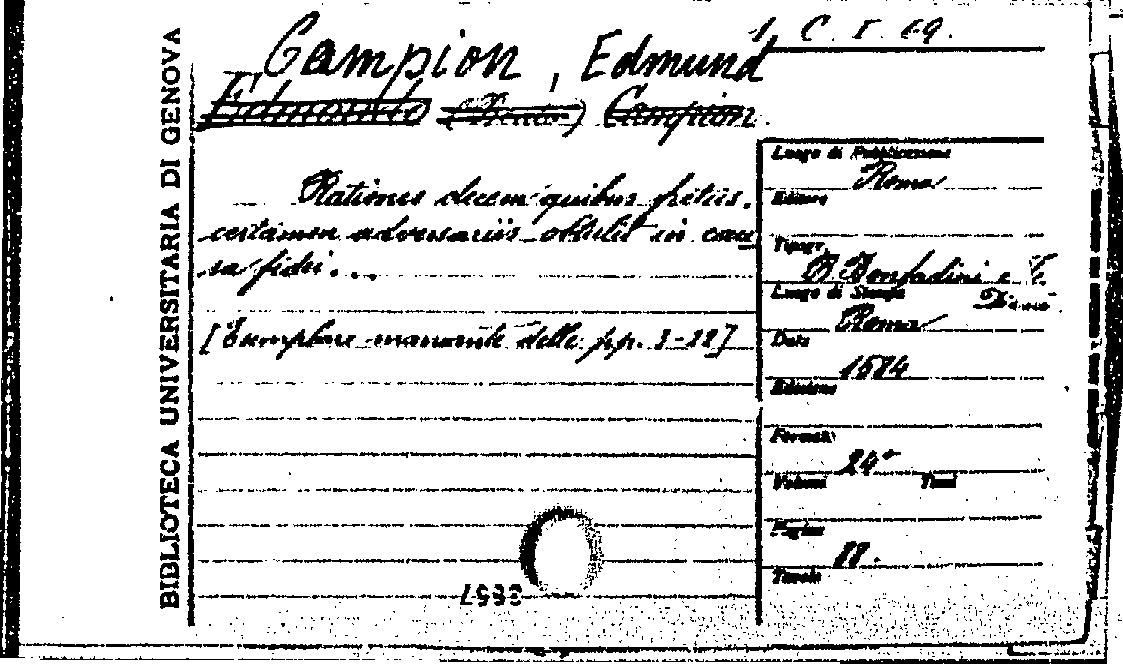 BIBLIOTECA UNIVERSITARIA DI GENOVA
1. C. V. 69.
Campion, Edmund
Edmondo Campion.
Rationes decem quibus fretus.
certamen adversariis obtulit in cau
sa fidei...
[Esemplare mancante delle pp. 1-22]
Luogo di Pubblicazione
Roma
Editore
Tipogr.
B. Bonfadini e T.
Diani
Luogo di Stampa
Roma
Data
1584
Edizione
Formato
24°
Volumi Tomi
Pagine
88.
Tavole